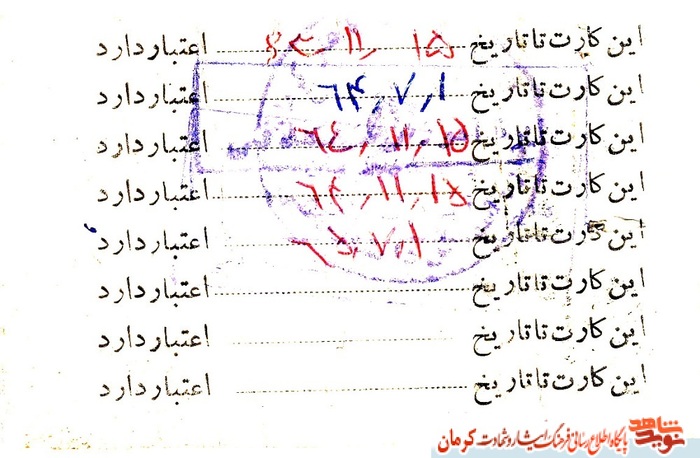 این کارت تا تاریخ ۱۵ ر ۱۱ ر ۶۳ اعتبار دارد
این کارت تا تاریخ ۱ ر ۷ ر ۶۴ اعتبار دارد
این کارت تا تاریخ ۱۵ ر ۱۱ ر ۶۴ اعتبار دارد
این کارت تا تاریخ ۱۵ ر ۱۱ ر ۶۴ اعتبار دارد
این کارت تا تاریخ ۱ ر ۷ ر اعتبار دارد
این کارت تا تاریخ اعتبار دارد
این کارت تا تاریخ اعتبار دارد
این کارت تا تاریخ اعتبار دارد
نوید شاهد پایگاه اطلاع رسانی فرهنگ ایثار و شهادت کرمان